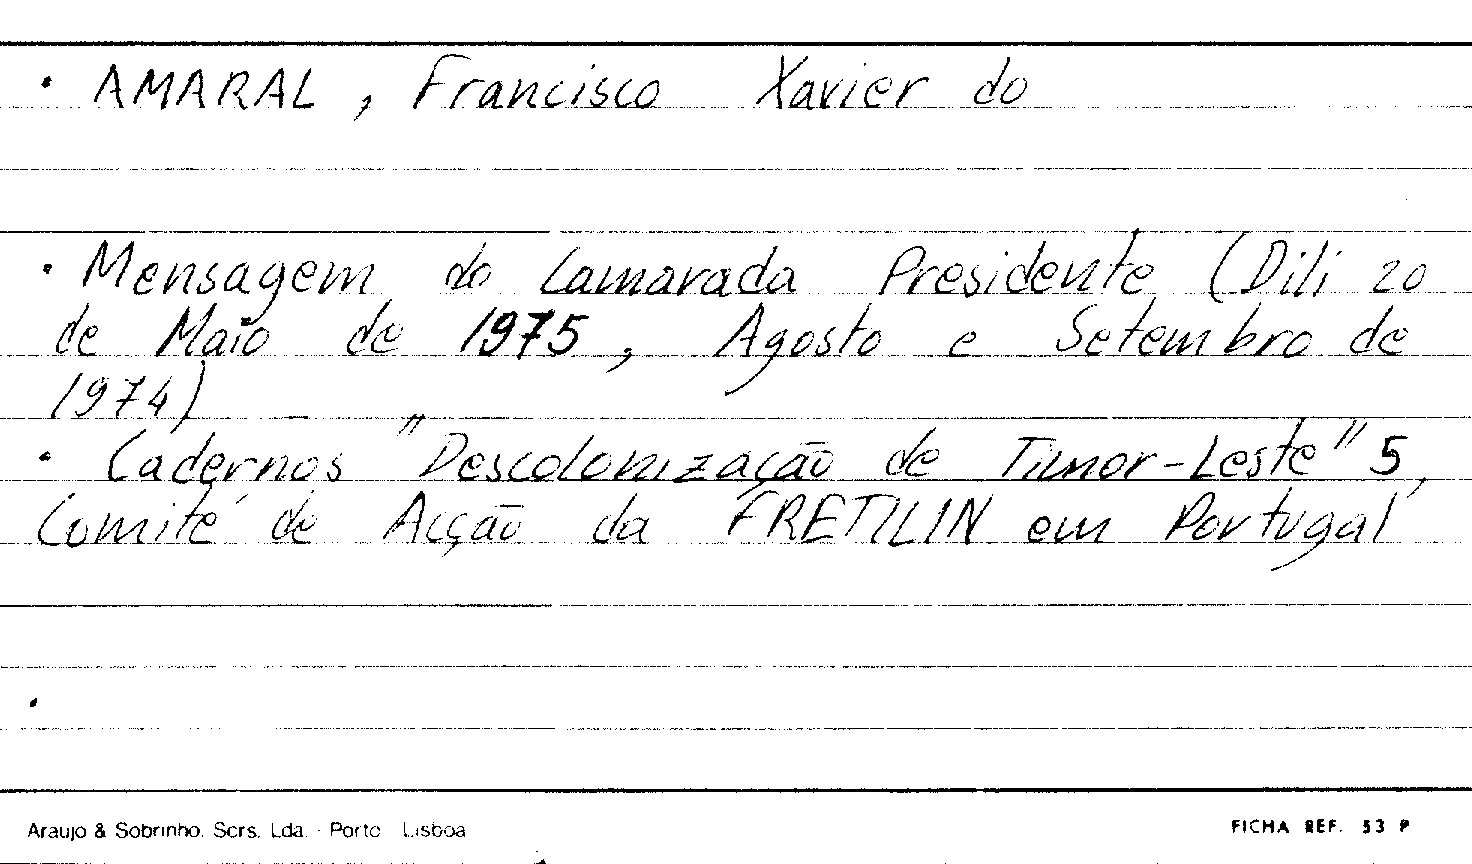 · AMARAL, Francisco Xavier do
· Mensagem do Camarada Presidente (Dili 20
de Maio de 1975, Agosto e Setembro de
1974)
· Cadernos "Descolonização de Timor-Leste" 5,
Comité de Acção da FRETILIN em Portugal
Araujo & Sobrinho, Scrs. Lda. - Porto Lisboa
FICHA REF. 53 P